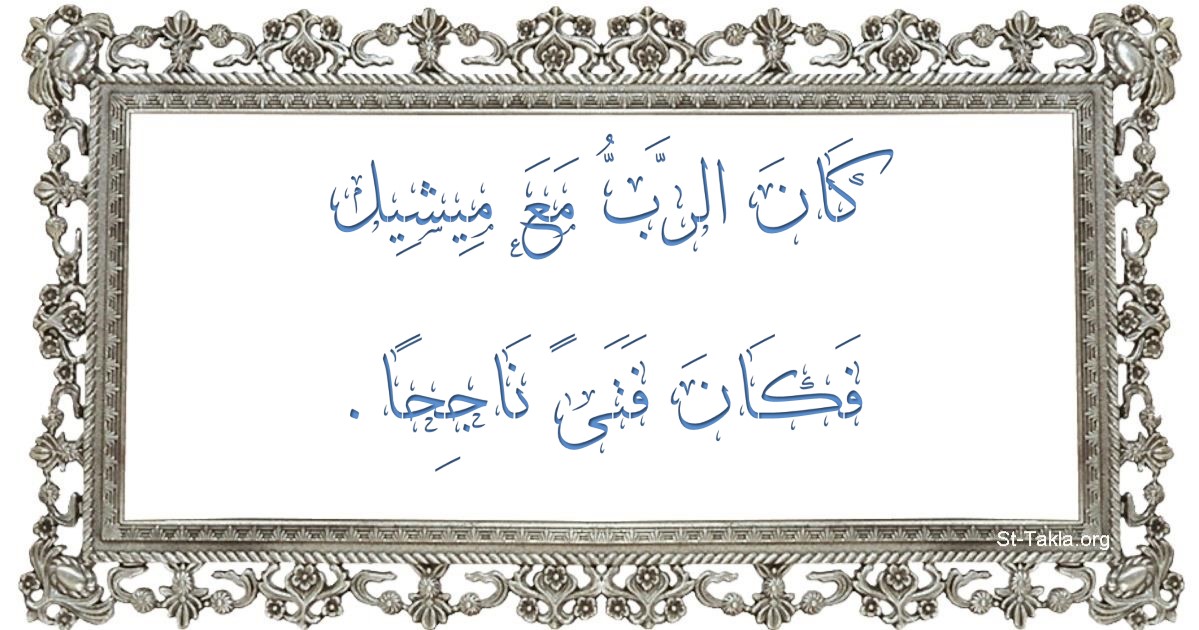 كَانَ الرَّبُّ مَعَ مِيشِيل
فَكَانَ فَتَىً نَاجِحًا .
St-Takla.org